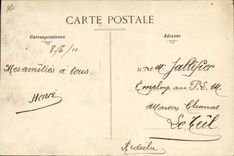 CARTE POSTALE
Correspondance
Adresse
8/6/10
Mes amitiés à tous.
Henri
Mr
Employé au P.L.M.
Maison
Le Teil
Ardèche